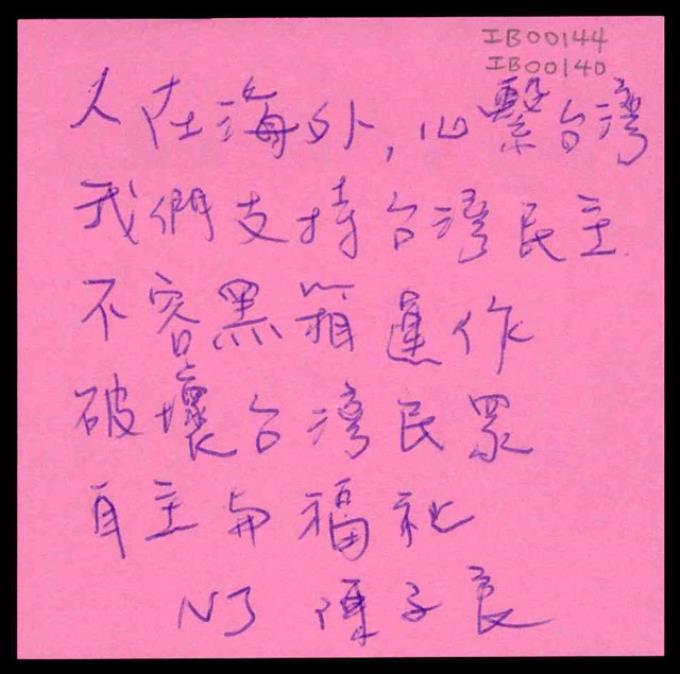 IB00144
IB00140
人在海外,心繫台灣
我們支持台灣民主
不容黑箱運作
破壞台灣民眾
自主与福祉
NJ 陳子良